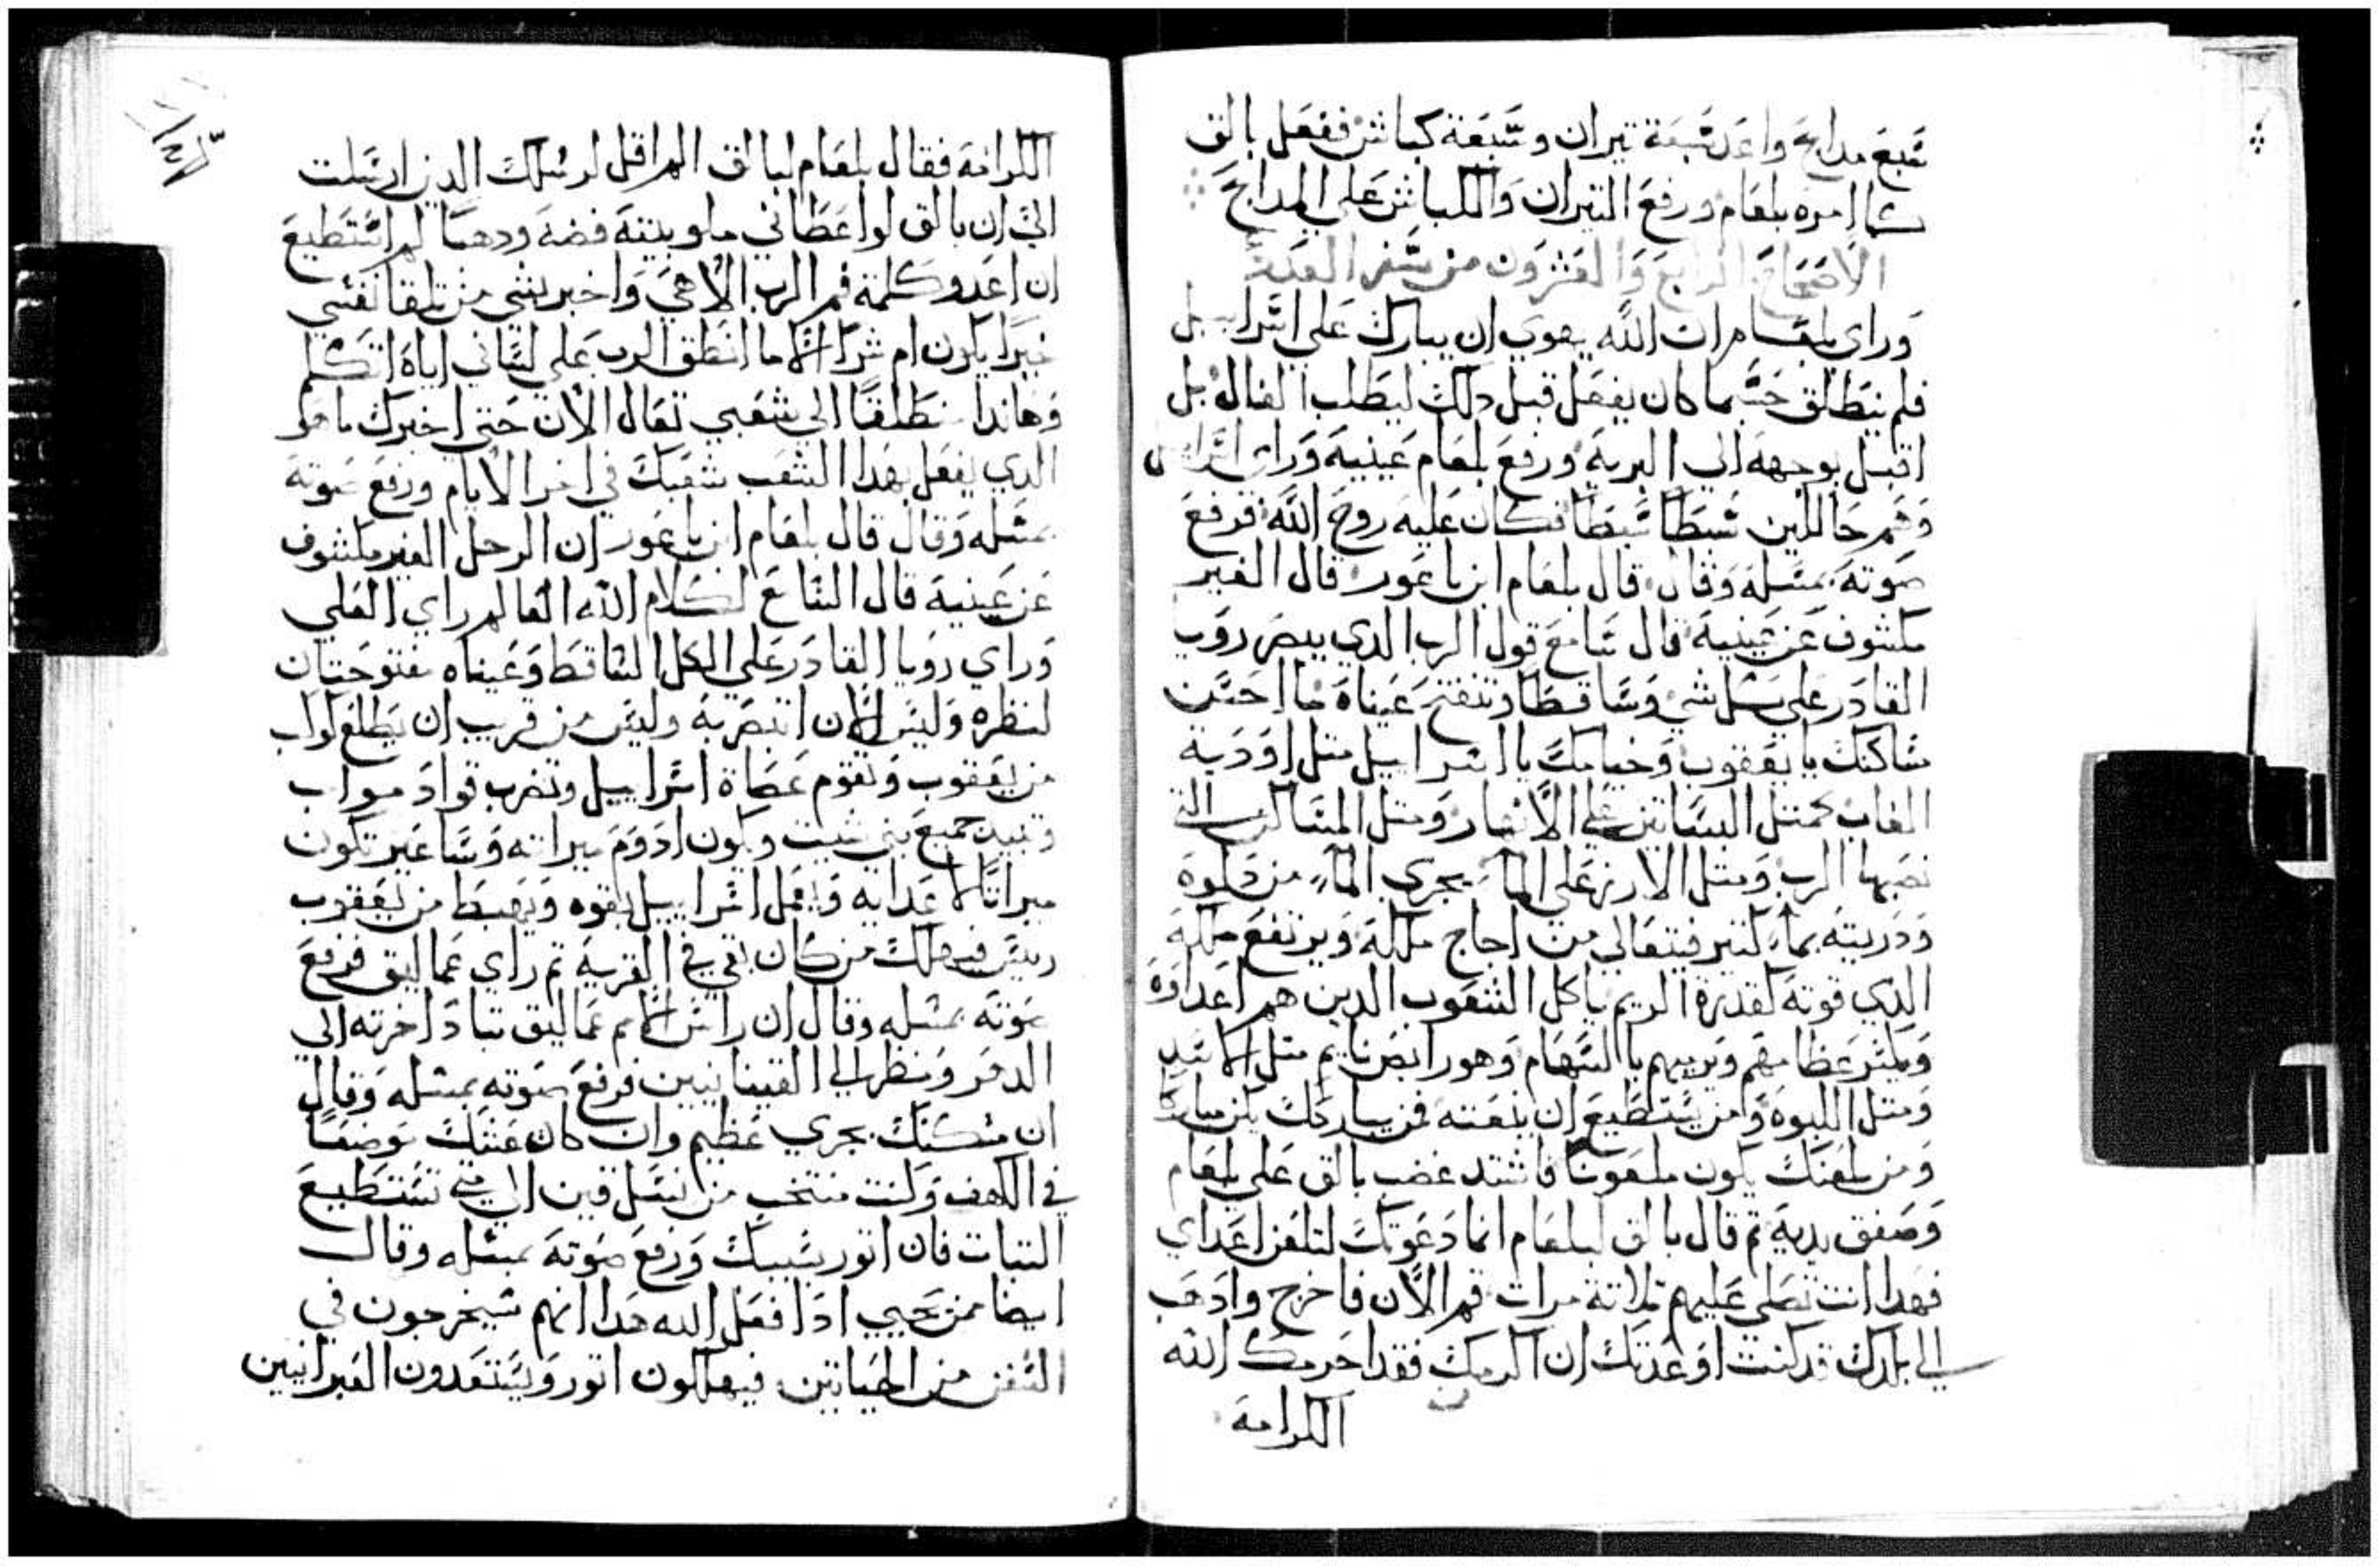 سبع مدابح واعد سبعة تيران وسبعة كباش ففعل بالق
كما امره بلعام ورفع التيران والكباش على المدابح
الاصحاح الرابع والعشرون من سفر العدد
وراي بلعام ان الله يهوي ان يبارك علي اسراييل
فلم ينطلق حسبما كان يفعل قبل دلك ليطلب الفال بل
اقبل بوجهه الي البرية ورفع بلعام عينيه وراي اسراييل
وهم حاللين سبطا سبطا فكان عليه روح الله فرفع
صوته بمتله وقال قال بلعام ابن باعور قال الغير
مكشوف عن عينيه قال سامع قول الرب الدي يبصر رويا
القادر علي كل شي وساقطا وتنفتح عيناه ما احسن
مساكنك يا يعقوب وخيامك يا اسراييل متل اودية
الغاب كمتل البساتين علي الانهار ومتل المساكن التي
نصبها الرب ومتل الارز علي الماء يجري الماء من دلوه
ودريته بماء كتير فيتعالي من اجاج ملكه ويرتفع ملكه
الدي قوته كقدرة الريم ياكل الشعوب الدين هم اعداوه
ويكسر عظامهم ويرميهم بالسهام وهو رابض نايم متل الاسد
ومتل اللبوة ومن يستطيع ان ينعته فمن يباركك يكن مباركا
ومن يلعنك يكون ملعونا فاشتد غضب بالق علي بلعام
وصفق بديه تم قال بالق لبلعام انما دعوتك لتلعن اعداي
فهدا انت تصلي عليهم تلاتة مرات قم الان فاخرج وادهب
الي بلدك قد كنت اوعدتك ان اكرمك فقد احرمك الله
الكرامة
الكرامة فقال بلعام لبالق الم اقل لرسلك الدين ارسلت
الي ان بالق لو اعطاني ملو بيته فضة ودهبا لم استطيع
ان اعدو كلمة فم الرب الاهي واخبر بشي من تلقا نفسي
خيرا يكون ام شرا الا ما انطق الرب علي لساني اياه اتكلم
وهاندا منطلقا الي شعبي تعال الان حتي اخبرك ما هو
الدي يفعل بهدا الشعب شعبك في اخر الايام ورفع صوته
بمتله وقال قال بلعام ابن باعور ان الرجل الغير مكشوف
عن عينيه قال السامع لكلام الله العالم راي العلي
وراي رويا القادر علي الكل الساقط وعيناه مفتوحتان
لنظره وليس الان ابصر به وليس من قريب ان يطلع كواب
من يعقوب وتقوم عصاة اسراييل وتضرب قواد مواب
وتبيد جميع بني شيت ويكون ادوم ميراته وساعير تكون
ميراتا لاعدايه ويعمل اسراييل بقوه ويهبط من يعقوب
رييس فيهلك من كان بقي في القرية تم راي عماليق فرفع
صوته بمتله وقال ان راس الامم عماليق تباد اخرته الي
الدهر ونظر الي القينانيين فرفع صوته بمتله وقال
ان مسكنك يجري عظيم وان كان عشك موضعا
في الكهف وكنت منتخب من نسل قين الي متي تستطيع
التبات فان اتور يسبيك ورفع صوته بمتله وقال
ايضا من يحيي ادا فعل الله هدا انهم سيخرجون في
السفن من الحياتين فيهلكون اتور ويستعبدون العبرانيين